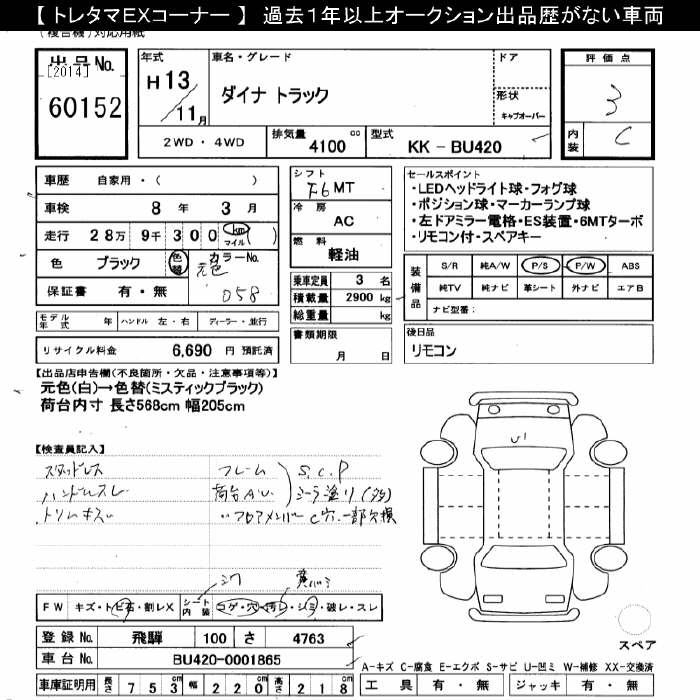 【 トレタマEXコーナー 】 過去1年以上オークション出品歴がない車両
(複合機)対応用紙
出品No.
[2014]
60152
年式
H 13
11 月
車名・グレード
ダイナ トラック
ドア
形状
キャブオーバー
評価点
3
内装
C
2WD ・ 4WD
排気量 4100 cc
型式 KK - BU420
車歴 自家用・( )
車検 8 年 3 月
走行 28万 9千 300 km マイル ( )
色 ブラック 色替 カラーNo.
元色 058
保証書 有・無
モデル年式 年 ハンドル 左・右 ディーラー・並行
リサイクル料金 6,690 円 預託済
シフト
F6 MT
冷房
AC
燃料
軽油
乗車定員 3 名
積載量 2900 kg
総重量 kg
書類期限
月 日
セールスポイント
・LEDヘッドライト球・フォグ球
・ポジション球・マーカーランプ球
・左ドアミラー電格・ES装置・6MTターボ
・リモコン付・スペアキー
装備品
S/R 純A/W P/S P/W ABS
純TV 純ナビ 革シート 外ナビ エアB
ナビ型番:
後日品
リモコン
【出品店申告欄(不良箇所・欠品・注意事項等)】
元色(白)→色替(ミスティックブラック)
荷台内寸 長さ568cm 幅205cm
【検査員記入】
スタッドレス
ハンドルスレ
トリムキズ
フレーム
荷台AU
S.C.P
シーラ塗り(多)
〃フロアメンバーC穴、一部欠損
U1
シワ
FW キズ・トビ石・割レX
シート内装 コゲ・穴・汚レ・シミ・破レ・スレ
登録No. 飛騨 100 さ 4763
車台No. BU420-0001865
車庫証明用 長さ 753 cm 幅 220 cm 高さ 218 cm
スペア
A-キズ C-腐食 E-エクボ S-サビ U-凹ミ W-補修 XX-交換済
工具 有・無 ジャッキ 有・無